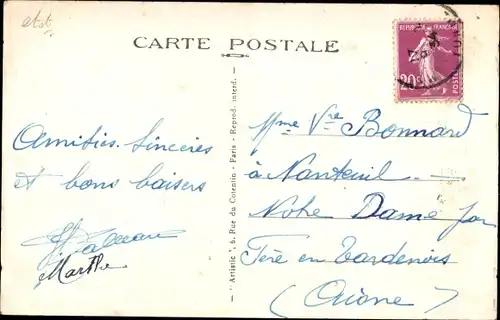 CARTE POSTALE
REPUBLIQUE FRANÇAISE
20c
POSTES
Amitiés Sincères
et bons baisers
Marthe
"Artistic", 5, Rue du Cotentin - Paris - Reprod. interd.
Mme Vve Bonnard
à Nanteuil
Notre Dame par
Fère en Tardenois
(Aisne)